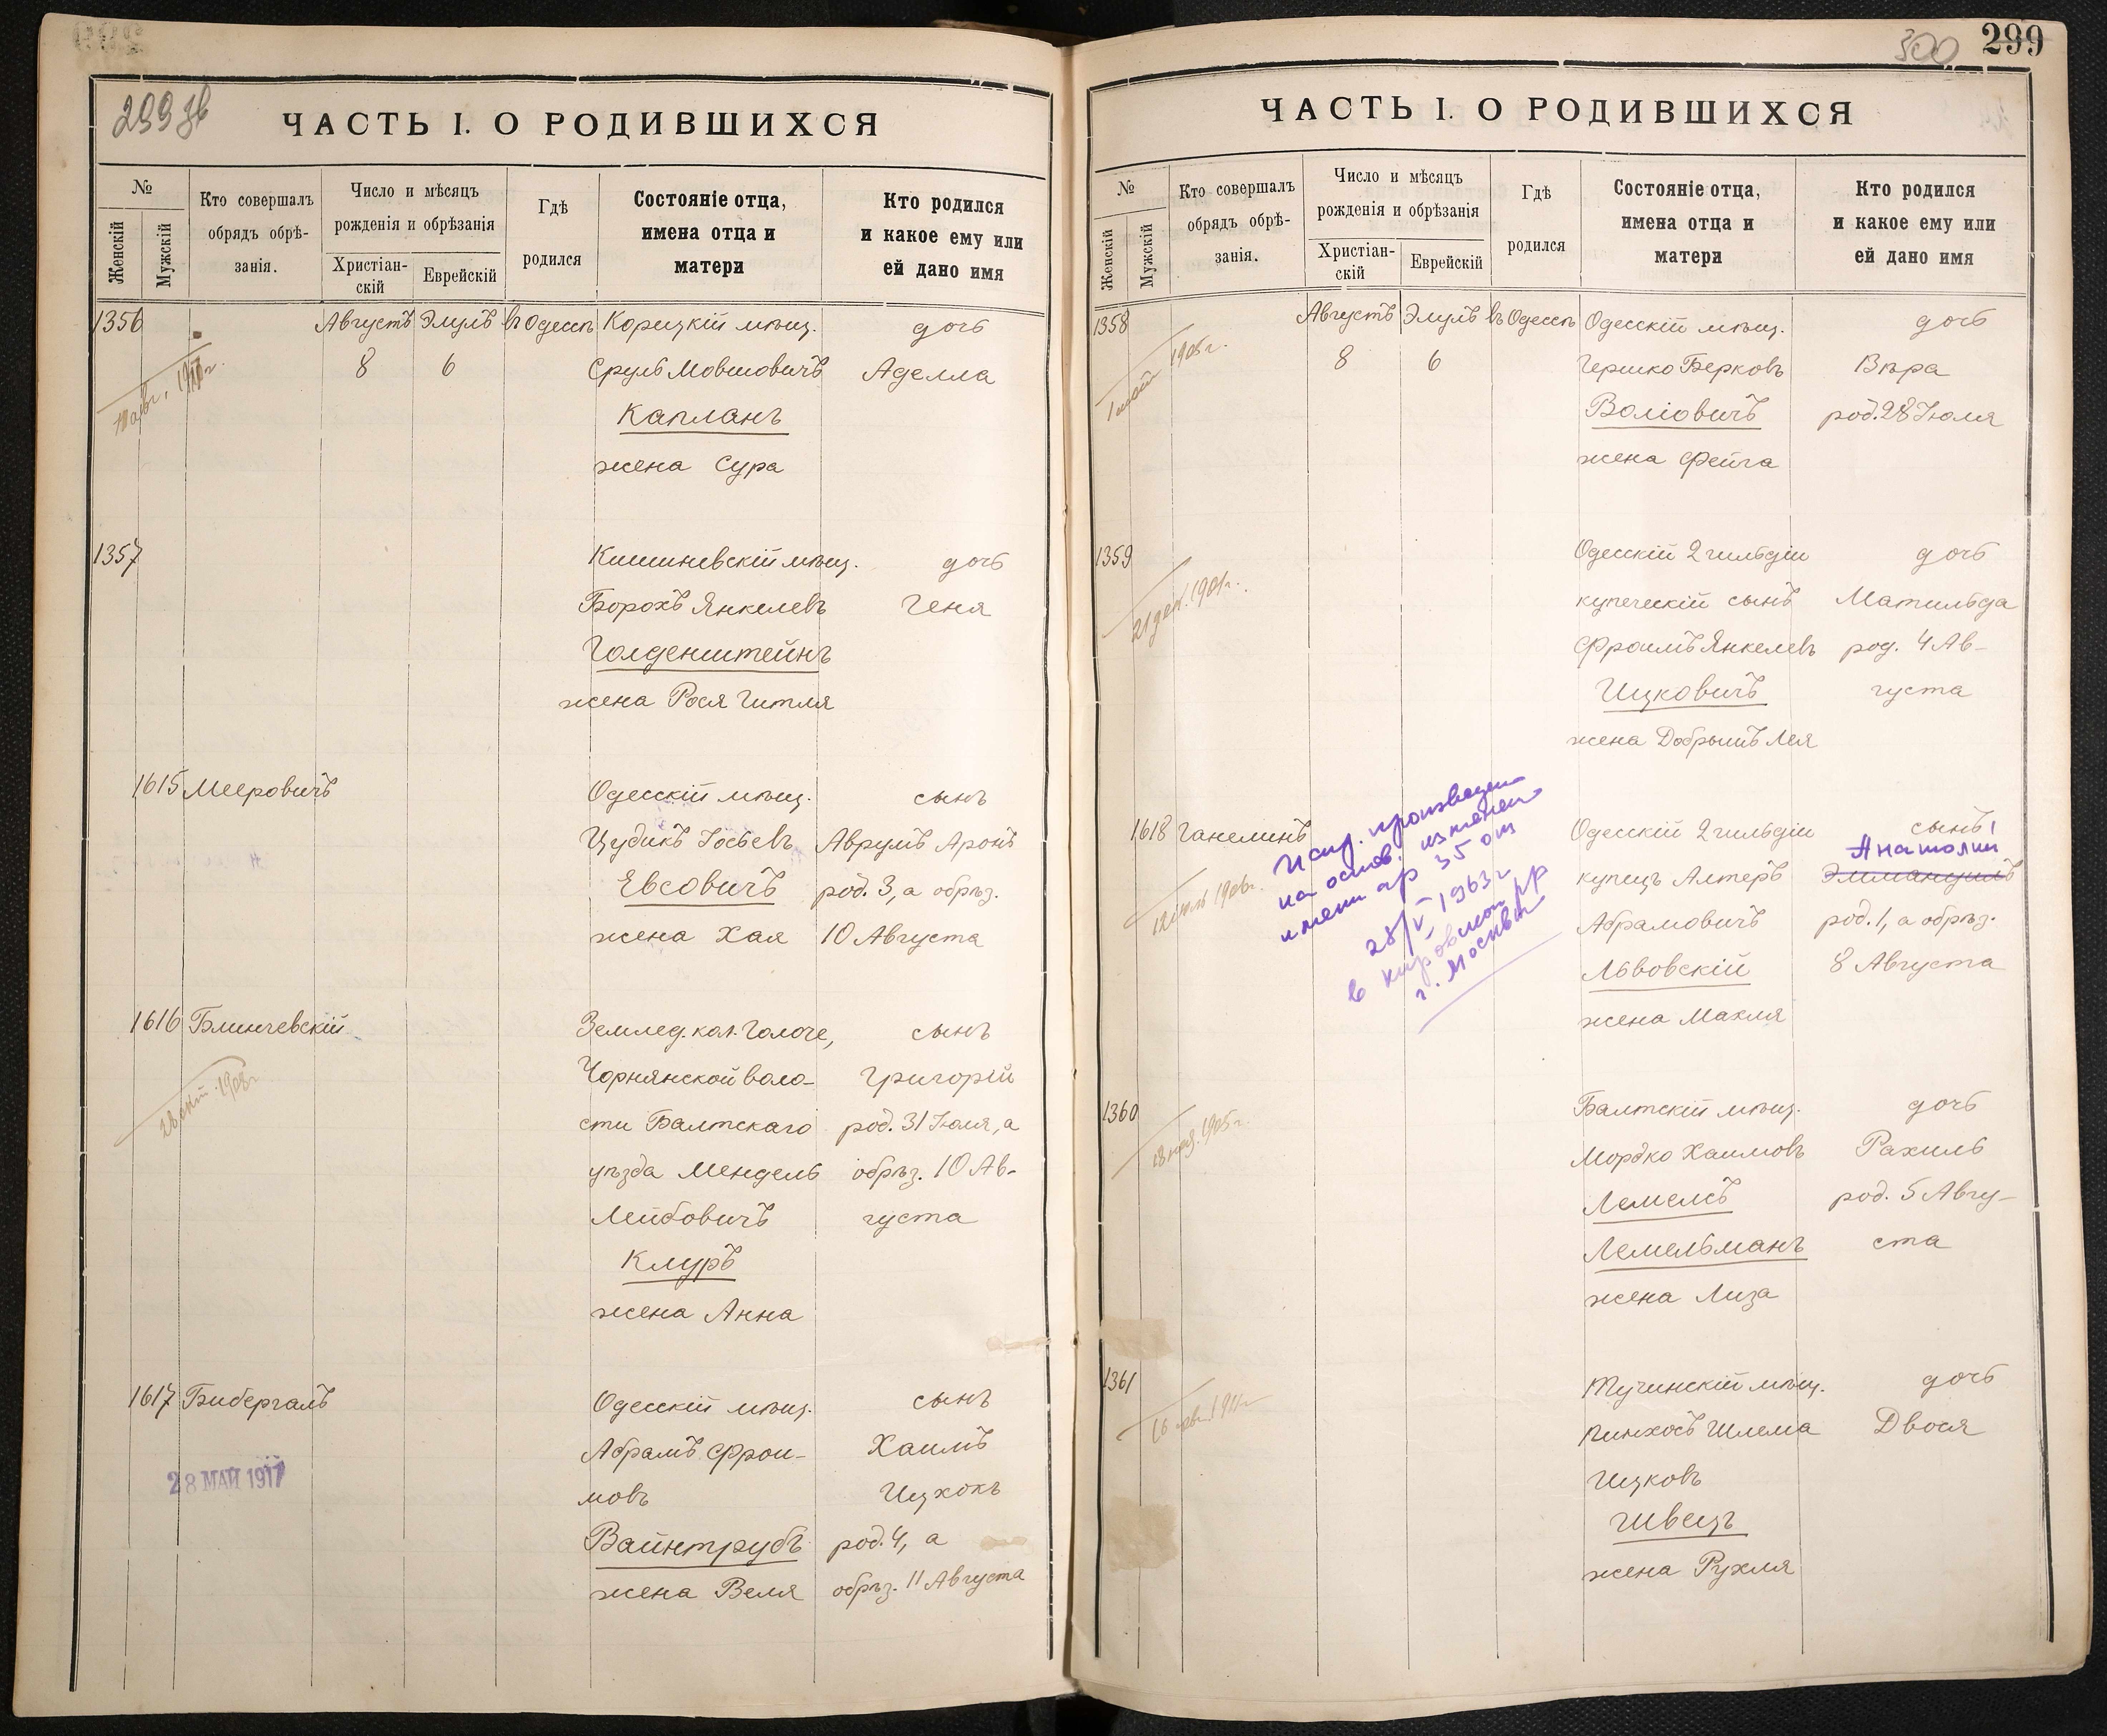 299 зв
ЧАСТЬ I. О РОДИВШИХСЯ
№
Женскій
Мужскій
Кто совершалъ
обрядъ обрѣ-
занія.
Число и мѣсяцъ
рожденія и обрѣзанія
Христіан-
скій
Еврейскій
Гдѣ
родился
Состояніе отца,
имена отца и
матери
Кто родился
и какое ему или
ей дано имя
1356 Августъ Элулъ въ Одессѣ Корецкій мѣщ. дочь
8 6 Сруль Мовшовичъ Аделла
Капланъ
жена Сура
1357 Кишиневскій мѣщ. дочь
Борохъ Янкелевъ Геня
Голденштейнъ
жена Рося Гитля
1615 Мееровичъ Одесскій мѣщ. сынъ
Цудикъ Іосьевъ Аврумъ Аронъ
Евсовичъ род. 3, а обрѣз.
жена Хая 10 Августа
1616 Блинчевскій Землед. кол.Голоче, сынъ
Чорнянской воло- Григорій
сти Балтскаго род. 31 Іюля, а
уѣзда Мендель обрѣз. 10 Ав-
Лейбовичъ густа
Клуръ
жена Анна
1617 Бибергалъ Одесскій мѣщ. сынъ
Абрамъ Фрои- Хаимъ
мовъ Ицхокъ
28 МАЙ 1917
Вайнтрубъ род. 4, а
жена Веля обрѣз. 11 Августа
300 299
ЧАСТЬ I. О РОДИВШИХСЯ
№
Женскій
Мужскій
Кто совершалъ
обрядъ обрѣ-
занія.
Число и мѣсяцъ
рожденія и обрѣзанія
Христіан-
скій
Еврейскій
Гдѣ
родился
Состояніе отца,
имена отца и
матери
Кто родился
и какое ему или
ей дано имя
1358 Августъ Элулъ въ Одессѣ Одесскій мѣщ. дочь
1905 г.
8 6 Гершко Берковъ Вѣра
Воліовичъ род. 28 Іюля
жена Фейга
1359 Одесскій 2 гильдіи дочь
21 дек. 1901 г.
купеческій сынъ Матильда
Фроимъ Янкелевъ род. 4 Ав-
Ицковичъ густа
жена Добрышъ Лея
1618 Ганелинъ Одесскій 2 гильдіи сынъ
Анатолий
купецъ Алтеръ Эммануилъ
Абрамовичъ род. 1, а обрѣз.
Львовскій 8 Августа
жена Махля
1906 г.
Испр. произведен
на основ. изменен
имени ар 35 от
28/V 1963 г
в кировском рр
г. Москвы
1360 Балтскій мѣщ. дочь
1905 г.
Мордко Хаимовъ Рахиль
Лемелсъ род. 5 Авгу-
Лемельманъ ста
жена Лиза
1361 Тучинскій мѣщ. дочь
Пинхосъ Шлема Двося
Ицковъ
Швецъ
жена Рухля